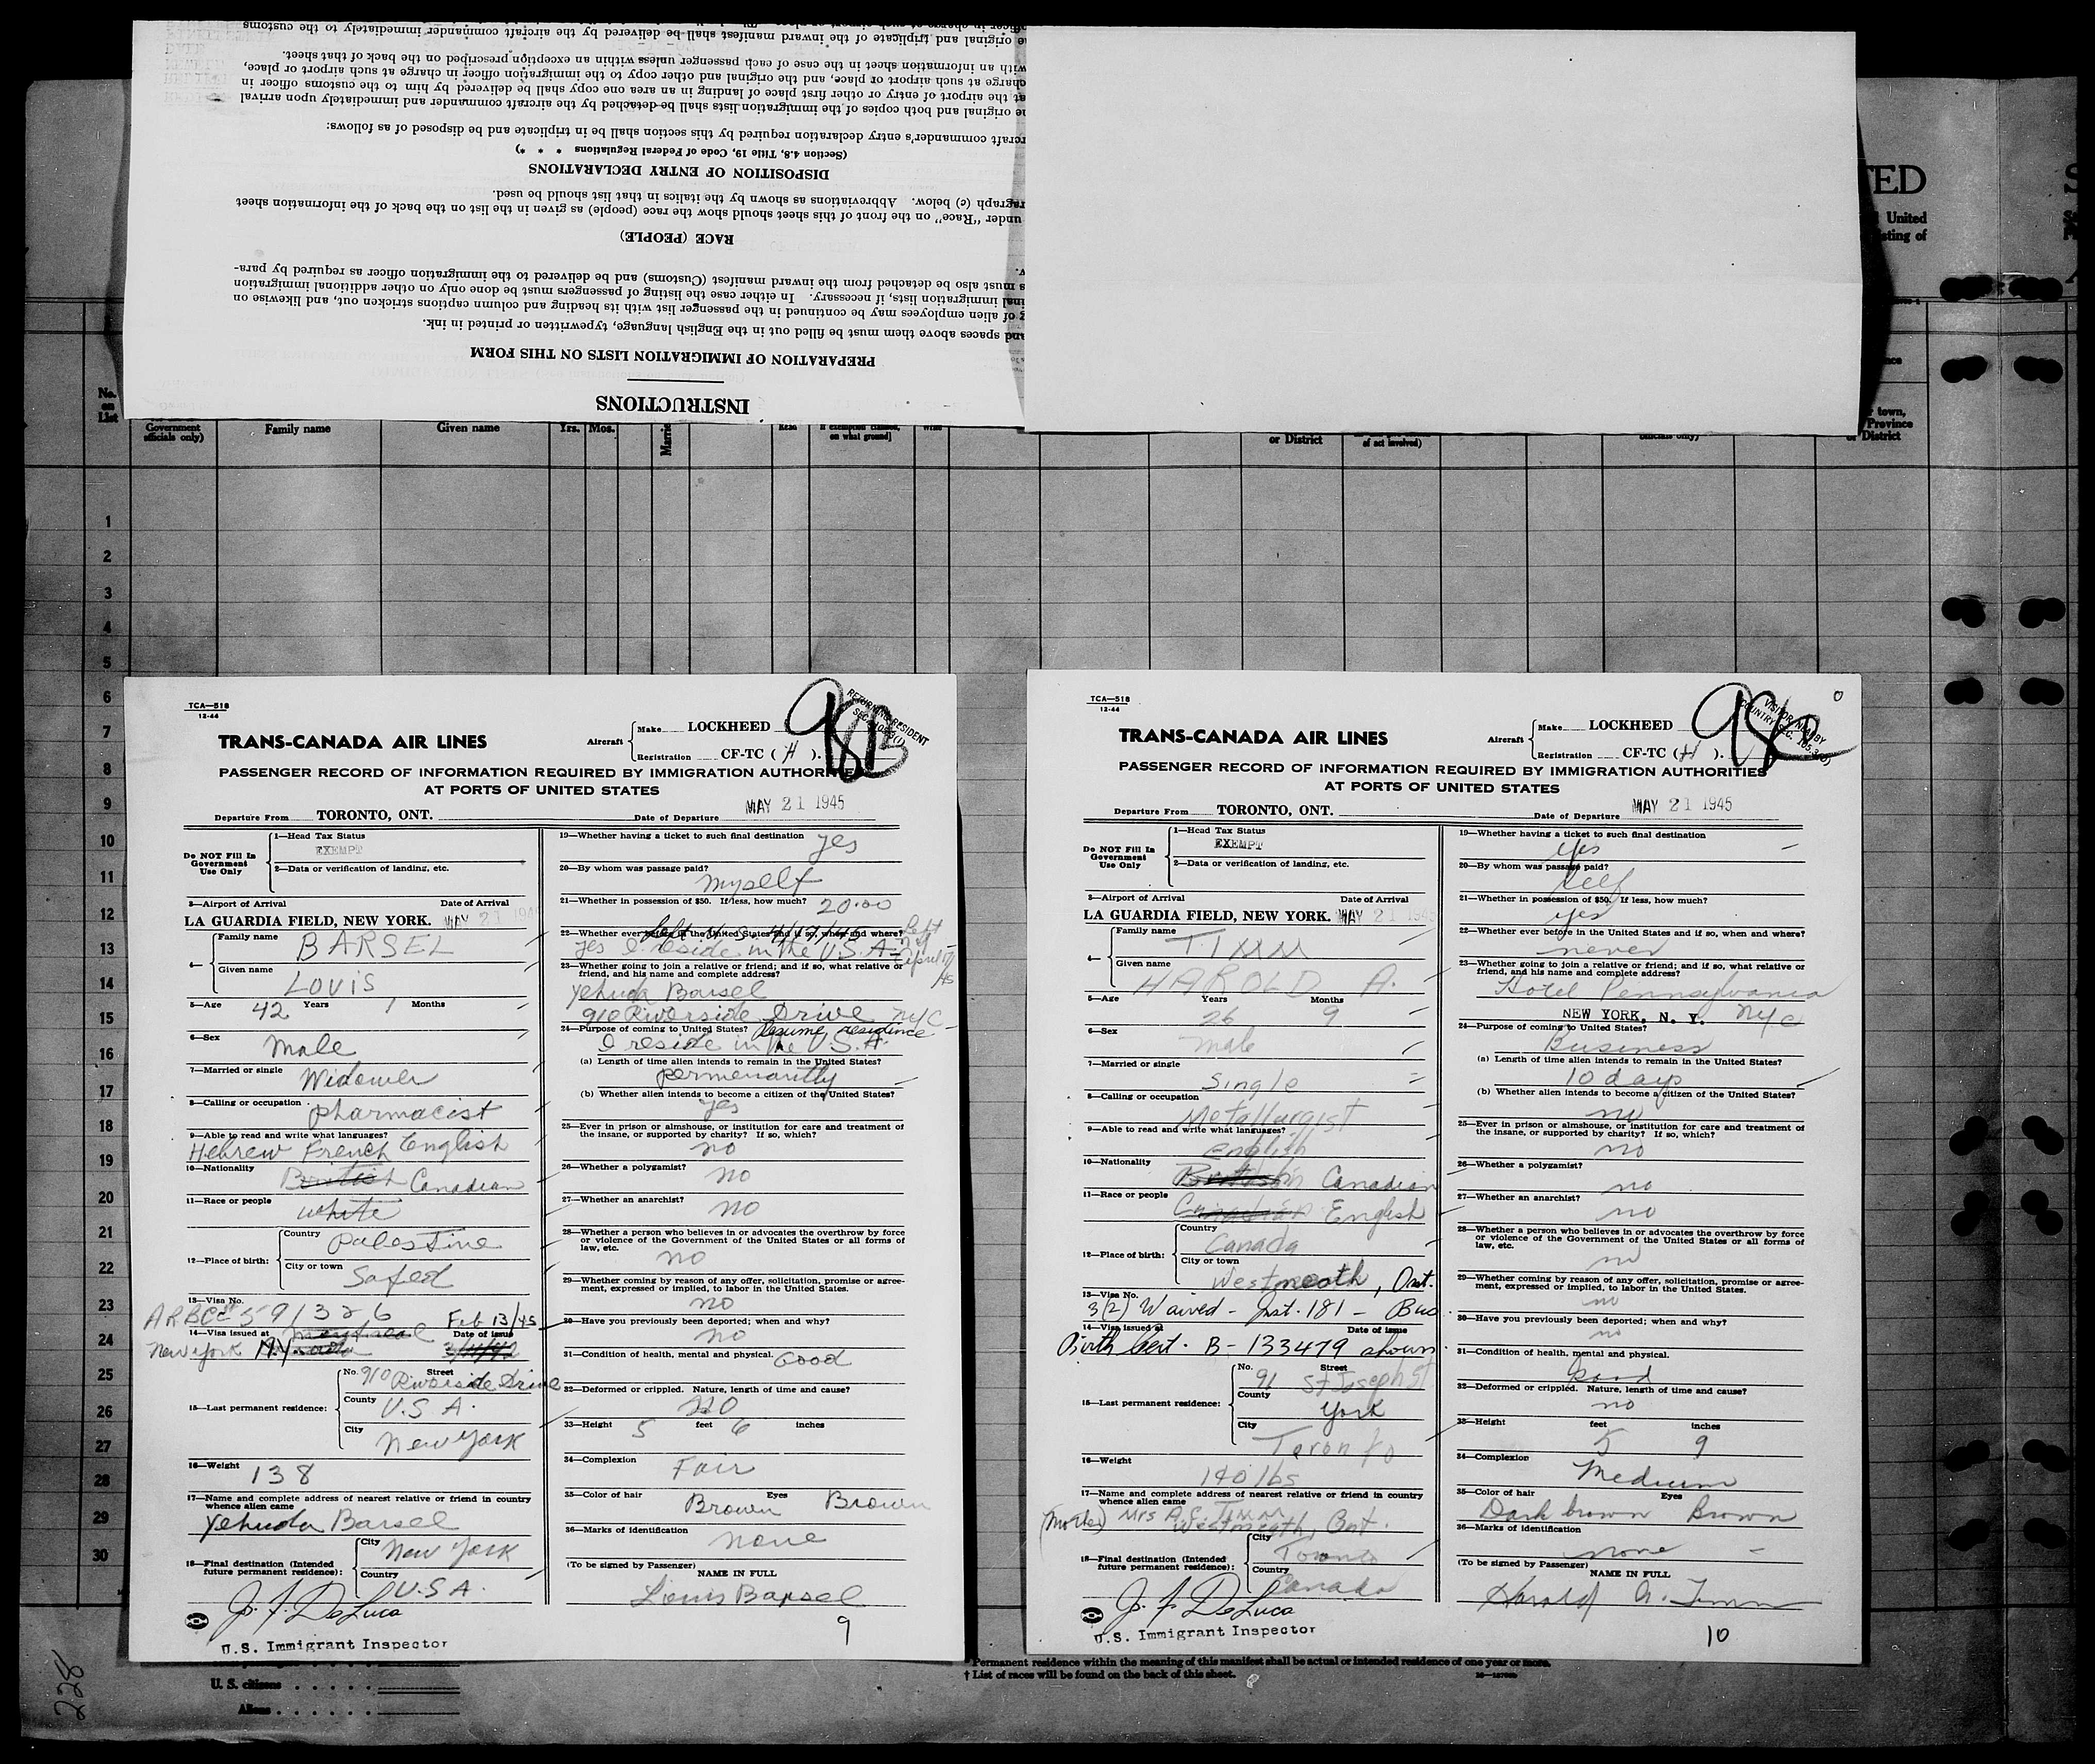 officer in charge at such airport or place.
the original and triplicate of the inward manifest shall be delivered by the aircraft commander immediately to the customs
with an information sheet in the case of each passenger unless within an exception prescribed on the back of that sheet.
charge at such airport or place, and the original and other copy to the immigration officer in charge at such airport or place,
at the airport of entry or other first place of landing in an area one copy shall be delivered by him to the customs officer in
e original and both copies of the immigration lists shall be detached by the aircraft commander and immediately upon arrival
rcraft commander's entry declaration required by this section shall be in triplicate and be disposed of as follows:
(Section 4.8, Title 19, Code of Federal Regulations * * *)
DISPOSITION OF ENTRY DECLARATIONS
ragraph (c) below. Abbreviations as shown by the italics in that list should be used.
under "Race" on the front of this sheet should show the race (people) as given in the list on the back of the information sheet
RACE (PEOPLE)
s must also be detached from the inward manifest (Customs) and be delivered to the immigration officer as required by para-
inal immigration lists, if necessary. In either case the listing of passengers must be done only on other additional immigration
g of alien employees may be continued in the passenger list with its heading and column captions stricken out, and likewise on
and spaces above them must be filled out in the English language, typewritten or printed in ink.
PREPARATION OF IMMIGRATION LISTS ON THIS FORM
INSTRUCTIONS
TED
United
sting of
No. on List
Government officials only)
Family name
Given name
Yrs. Mos.
Read
on what ground]
Write
or District
of act involved)
officials only)
town,
Province
or District
1
2
3
4
5
6
7
8
9
10
11
12
13
14
15
16
17
18
19
20
21
22
23
24
25
26
27
28
29
30
TCA—518
12-44
TRANS-CANADA AIR LINES
Aircraft
Make LOCKHEED
Registration CF-TC ( H ).
RETURNING RESIDENT
PASSENGER RECORD OF INFORMATION REQUIRED BY IMMIGRATION AUTHORITIES
AT PORTS OF UNITED STATES
Departure From TORONTO, ONT. Date of Departure MAY 21 1945
Do NOT Fill In Government Use Only
1—Head Tax Status
EXEMPT
2—Data or verification of landing, etc.
3—Airport of Arrival Date of Arrival
LA GUARDIA FIELD, NEW YORK. MAY 21 194
4— Family name BARSEL
Given name LOUIS
5—Age 42 Years 1 Months
6—Sex Male
7—Married or single Widower
8—Calling or occupation pharmacist
9—Able to read and write what languages?
Hebrew French English
10—Nationality British Canadian
11—Race or people white
12—Place of birth: Country Palestine
City or town Safed
13—Visa No.
591326 Feb 13/45
14—Visa issued at Montreal Date of issue
New York
15—Last permanent residence: No. 910 Street Riverside Drive
County U.S.A.
City New York
16—Weight 138
17—Name and complete address of nearest relative or friend in country whence alien came
Yehuda Barsel
18—Final destination (Intended future permanent residence): City New York
Country U.S.A.
J. F. DeLuca
U.S. Immigrant Inspector
19—Whether having a ticket to such final destination yes
20—By whom was passage paid? myself
21—Whether in possession of $50. If less, how much? 20.00
22—Whether ever before in the United States and if so, when and where?
yes I reside in the U.S.A. Left April 17/45
23—Whether going to join a relative or friend; and if so, what relative or friend, and his name and complete address?
Yehuda Barsel
910 Riverside Drive NYC
24—Purpose of coming to United States? Resume residence
I reside in the U.S.A.
(a) Length of time alien intends to remain in the United States?
permenantly
(b) Whether alien intends to become a citizen of the United States?
yes
25—Ever in prison or almshouse, or institution for care and treatment of the insane, or supported by charity? If so, which?
no
26—Whether a polygamist? no
27—Whether an anarchist? no
28—Whether a person who believes in or advocates the overthrow by force or violence of the Government of the United States or all forms of law, etc.
no
29—Whether coming by reason of any offer, solicitation, promise or agreement, expressed or implied, to labor in the United States.
no
30—Have you previously been deported; when and why?
no
31—Condition of health, mental and physical. Good
32—Deformed or crippled. Nature, length of time and cause?
no
33—Height 5 feet 6 inches
34—Complexion Fair
35—Color of hair Brown Eyes Brown
36—Marks of identification none
(To be signed by Passenger) NAME IN FULL
Louis Barsel
9
TCA—518
12-44
TRANS-CANADA AIR LINES
Aircraft
Make LOCKHEED
Registration CF-TC ( H ).
PASSENGER RECORD OF INFORMATION REQUIRED BY IMMIGRATION AUTHORITIES
AT PORTS OF UNITED STATES
Departure From TORONTO, ONT. Date of Departure MAY 21 1945
Do NOT Fill In Government Use Only
1—Head Tax Status
EXEMPT
2—Data or verification of landing, etc.
3—Airport of Arrival Date of Arrival
LA GUARDIA FIELD, NEW YORK. MAY 21 1945
4— Family name TIMM
Given name HAROLD A.
5—Age 26 Years 9 Months
6—Sex Male
7—Married or single Single
8—Calling or occupation Metallurgist
9—Able to read and write what languages?
English
10—Nationality Canadian
11—Race or people Canadian English
12—Place of birth: Country Canada
City or town Westmeath, Ont.
13—Visa No.
3(2) Waived - Inst. 181 - Bus
14—Visa issued at Date of issue
Birth Cert. B-133479 shown
15—Last permanent residence: No. 91 Street St Joseph St
County York
City Toronto
16—Weight 140 lbs
17—Name and complete address of nearest relative or friend in country whence alien came
(Mother) Mrs A. C. Timm
Westmeath, Ont.
18—Final destination (Intended future permanent residence): City Toronto
Country Canada
J. F. DeLuca
U.S. Immigrant Inspector
19—Whether having a ticket to such final destination
yes
20—By whom was passage paid?
self
21—Whether in possession of $50. If less, how much?
yes
22—Whether ever before in the United States and if so, when and where?
never
23—Whether going to join a relative or friend; and if so, what relative or friend, and his name and complete address?
Hotel Pennsylvania
NEW YORK, N. Y. NYC
24—Purpose of coming to United States?
Business
(a) Length of time alien intends to remain in the United States?
10 days
(b) Whether alien intends to become a citizen of the United States?
no
25—Ever in prison or almshouse, or institution for care and treatment of the insane, or supported by charity? If so, which?
no
26—Whether a polygamist? no
27—Whether an anarchist? no
28—Whether a person who believes in or advocates the overthrow by force or violence of the Government of the United States or all forms of law, etc.
no
29—Whether coming by reason of any offer, solicitation, promise or agreement, expressed or implied, to labor in the United States.
no
30—Have you previously been deported; when and why?
no
31—Condition of health, mental and physical.
Good
32—Deformed or crippled. Nature, length of time and cause?
no
33—Height 5 feet 9 inches
34—Complexion Medium
35—Color of hair Dark brown Eyes Brown
36—Marks of identification none
(To be signed by Passenger) NAME IN FULL
Harold A. Timm
10
Permanent residence within the meaning of this manifest shall be actual or intended residence of one year or more.
† List of races will be found on the back of this sheet.
U. S. citizens
Aliens
228